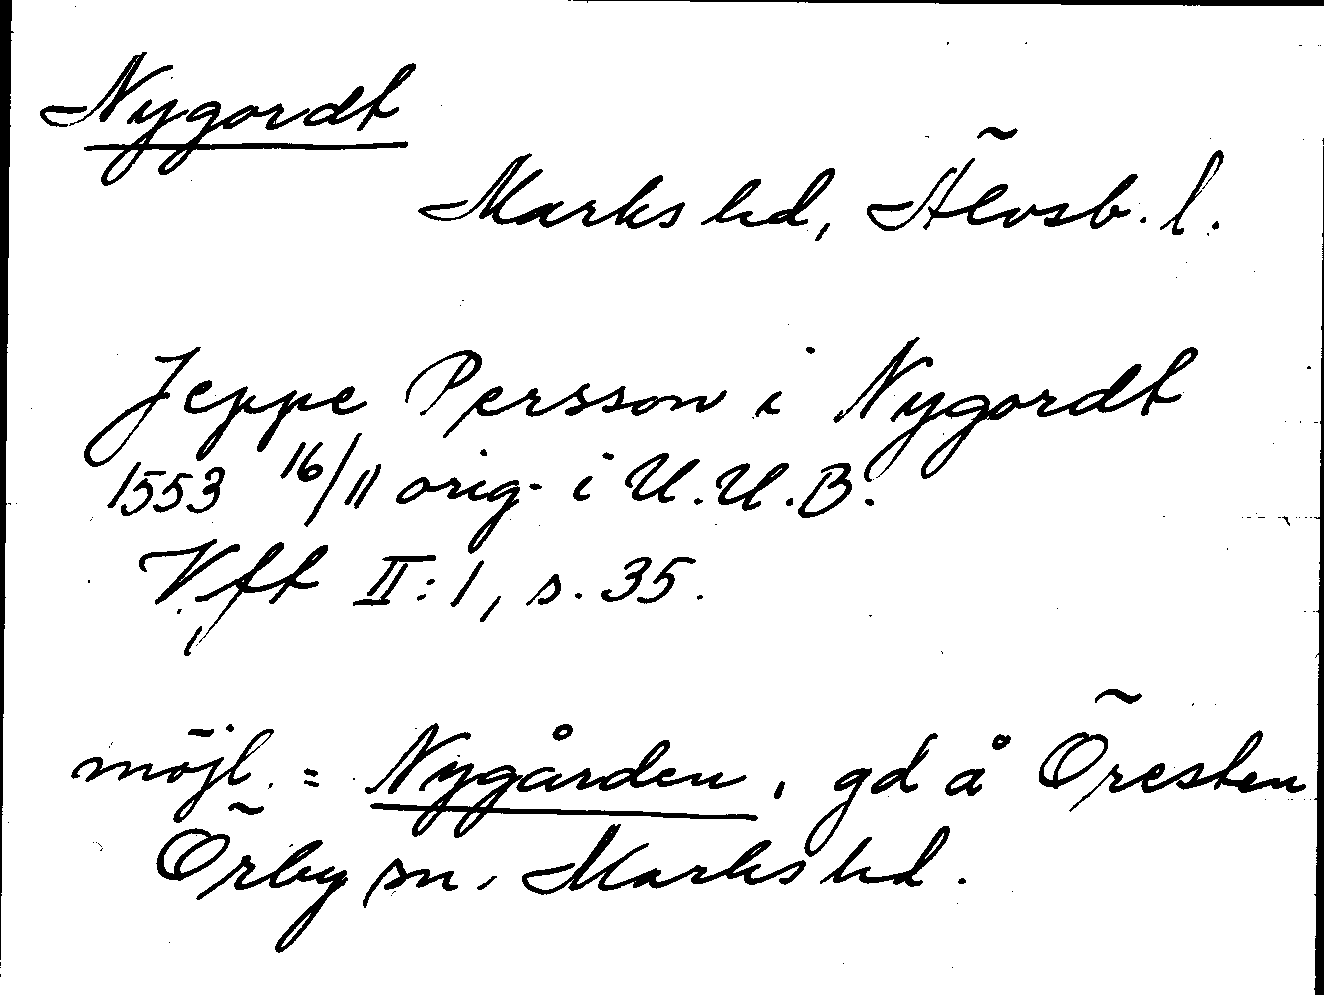 Nygordt
Marks hd, Älvsb. l.
Jeppe Persson i Nygordt
1553 16/11 orig. i U.U.B.
Vft II:1, s. 35.
möjl. = Nygården, gd å Öresten
Örby sn, Marks hd.